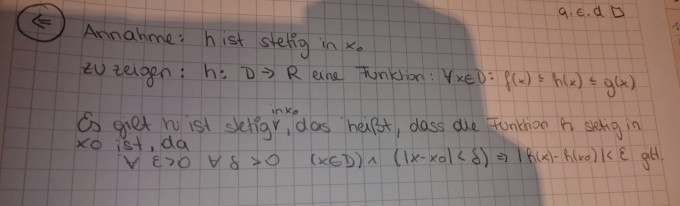 q.e.d □
(⇐) Annahme: h ist stetig in x₀
zu zeigen: h: D → R eine Funktion: ∀x∈D: f(x) ≤ h(x) ≤ g(x)
in x₀
Es gilt h ist stetig, das heißt, dass die Funktion h stetig in
x0 ist, da
∀ ε>0 ∀ δ>0 (x∈D) ∧ (|x-x0|<δ) ⇒ |h(x)-h(x0)|< ε gilt.